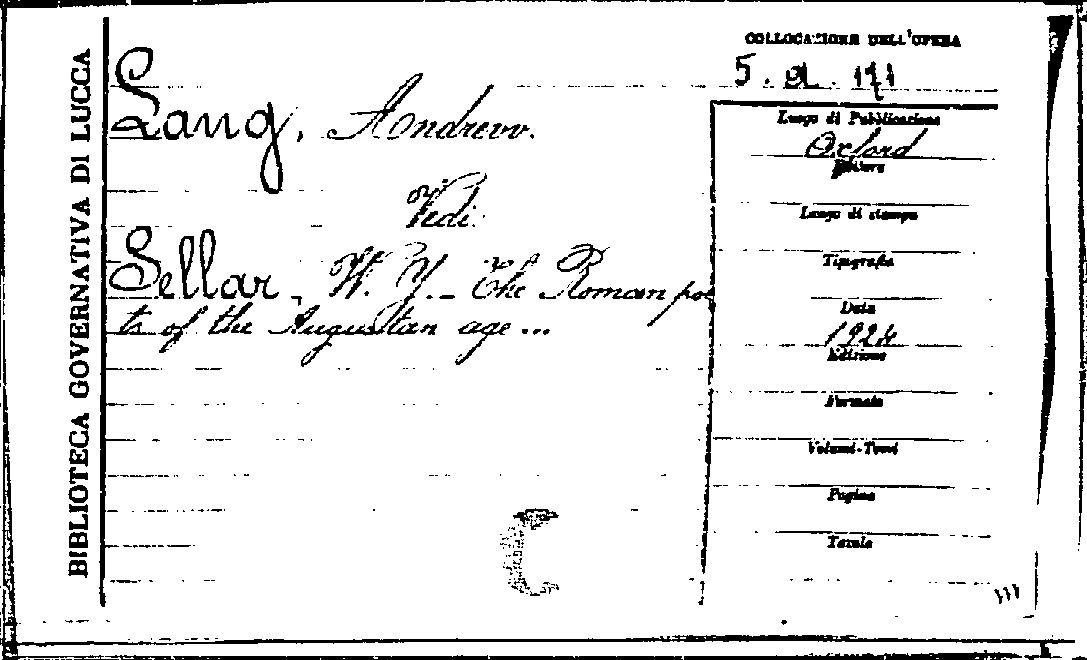 BIBLIOTECA GOVERNATIVA DI LUCCA
COLLOCAZIONE DELL'OPERA
5. a. 171
Lang, Andrew.
Vedi:
Sellar, W. Y. - The Roman poe
ts of the Augustan age...
Luogo di Pubblicazione
Oxford
Editore
Luogo di stampa
Tipografia
Data
1924
Edizione
Formato
Volumi-Tomi
Pagine
Tavole
C